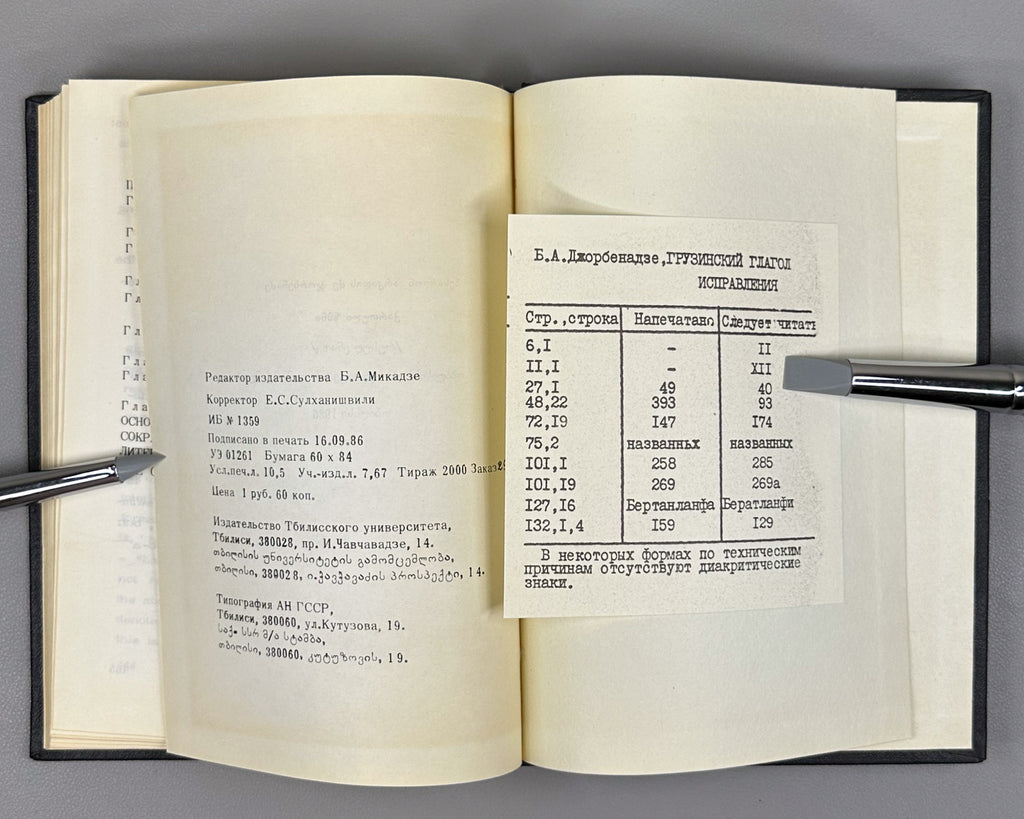 Редактор издательства Б.А.Микадзе
Корректор Е.С.Сулханишвили
ИБ № 1359
Подписано в печать 16.09.86
УЭ 01261 Бумага 60 x 84
Усл.печ.л. 10,5 Уч.-изд.л. 7,67 Тираж 2000 Заказ
Цена 1 руб. 60 коп.
Издательство Тбилисского университета,
Тбилиси, 380028, пр. И.Чавчавадзе, 14.
თბილისის უნივერსიტეტის გამომცემლობა,
თბილისი, 380028, ი.ჭავჭავაძის პროსპექტი, 14.
Типография АН ГССР,
Тбилиси, 380060, ул.Кутузова, 19.
საქ. სსრ მ/ა სტამბა,
თბილისი, 380060, კუტუზოვის, 19.
Б.А.Джорбенадзе, ГРУЗИНСКИЙ ГЛАГОЛ
ИСПРАВЛЕНИЯ
Стр.,строка Напечатано Следует читать
6,I - II
II,I - XII
27,I 49 40
48,22 393 93
72,I9 I47 I74
75,2 названных названных
I0I,I 258 285
I0I,I9 269 269а
I27,I6 Бертанланфа Берталанфи
I32,I,4 I59 I29
В некоторых формах по техническим
причинам отсутствуют диакритические
знаки.